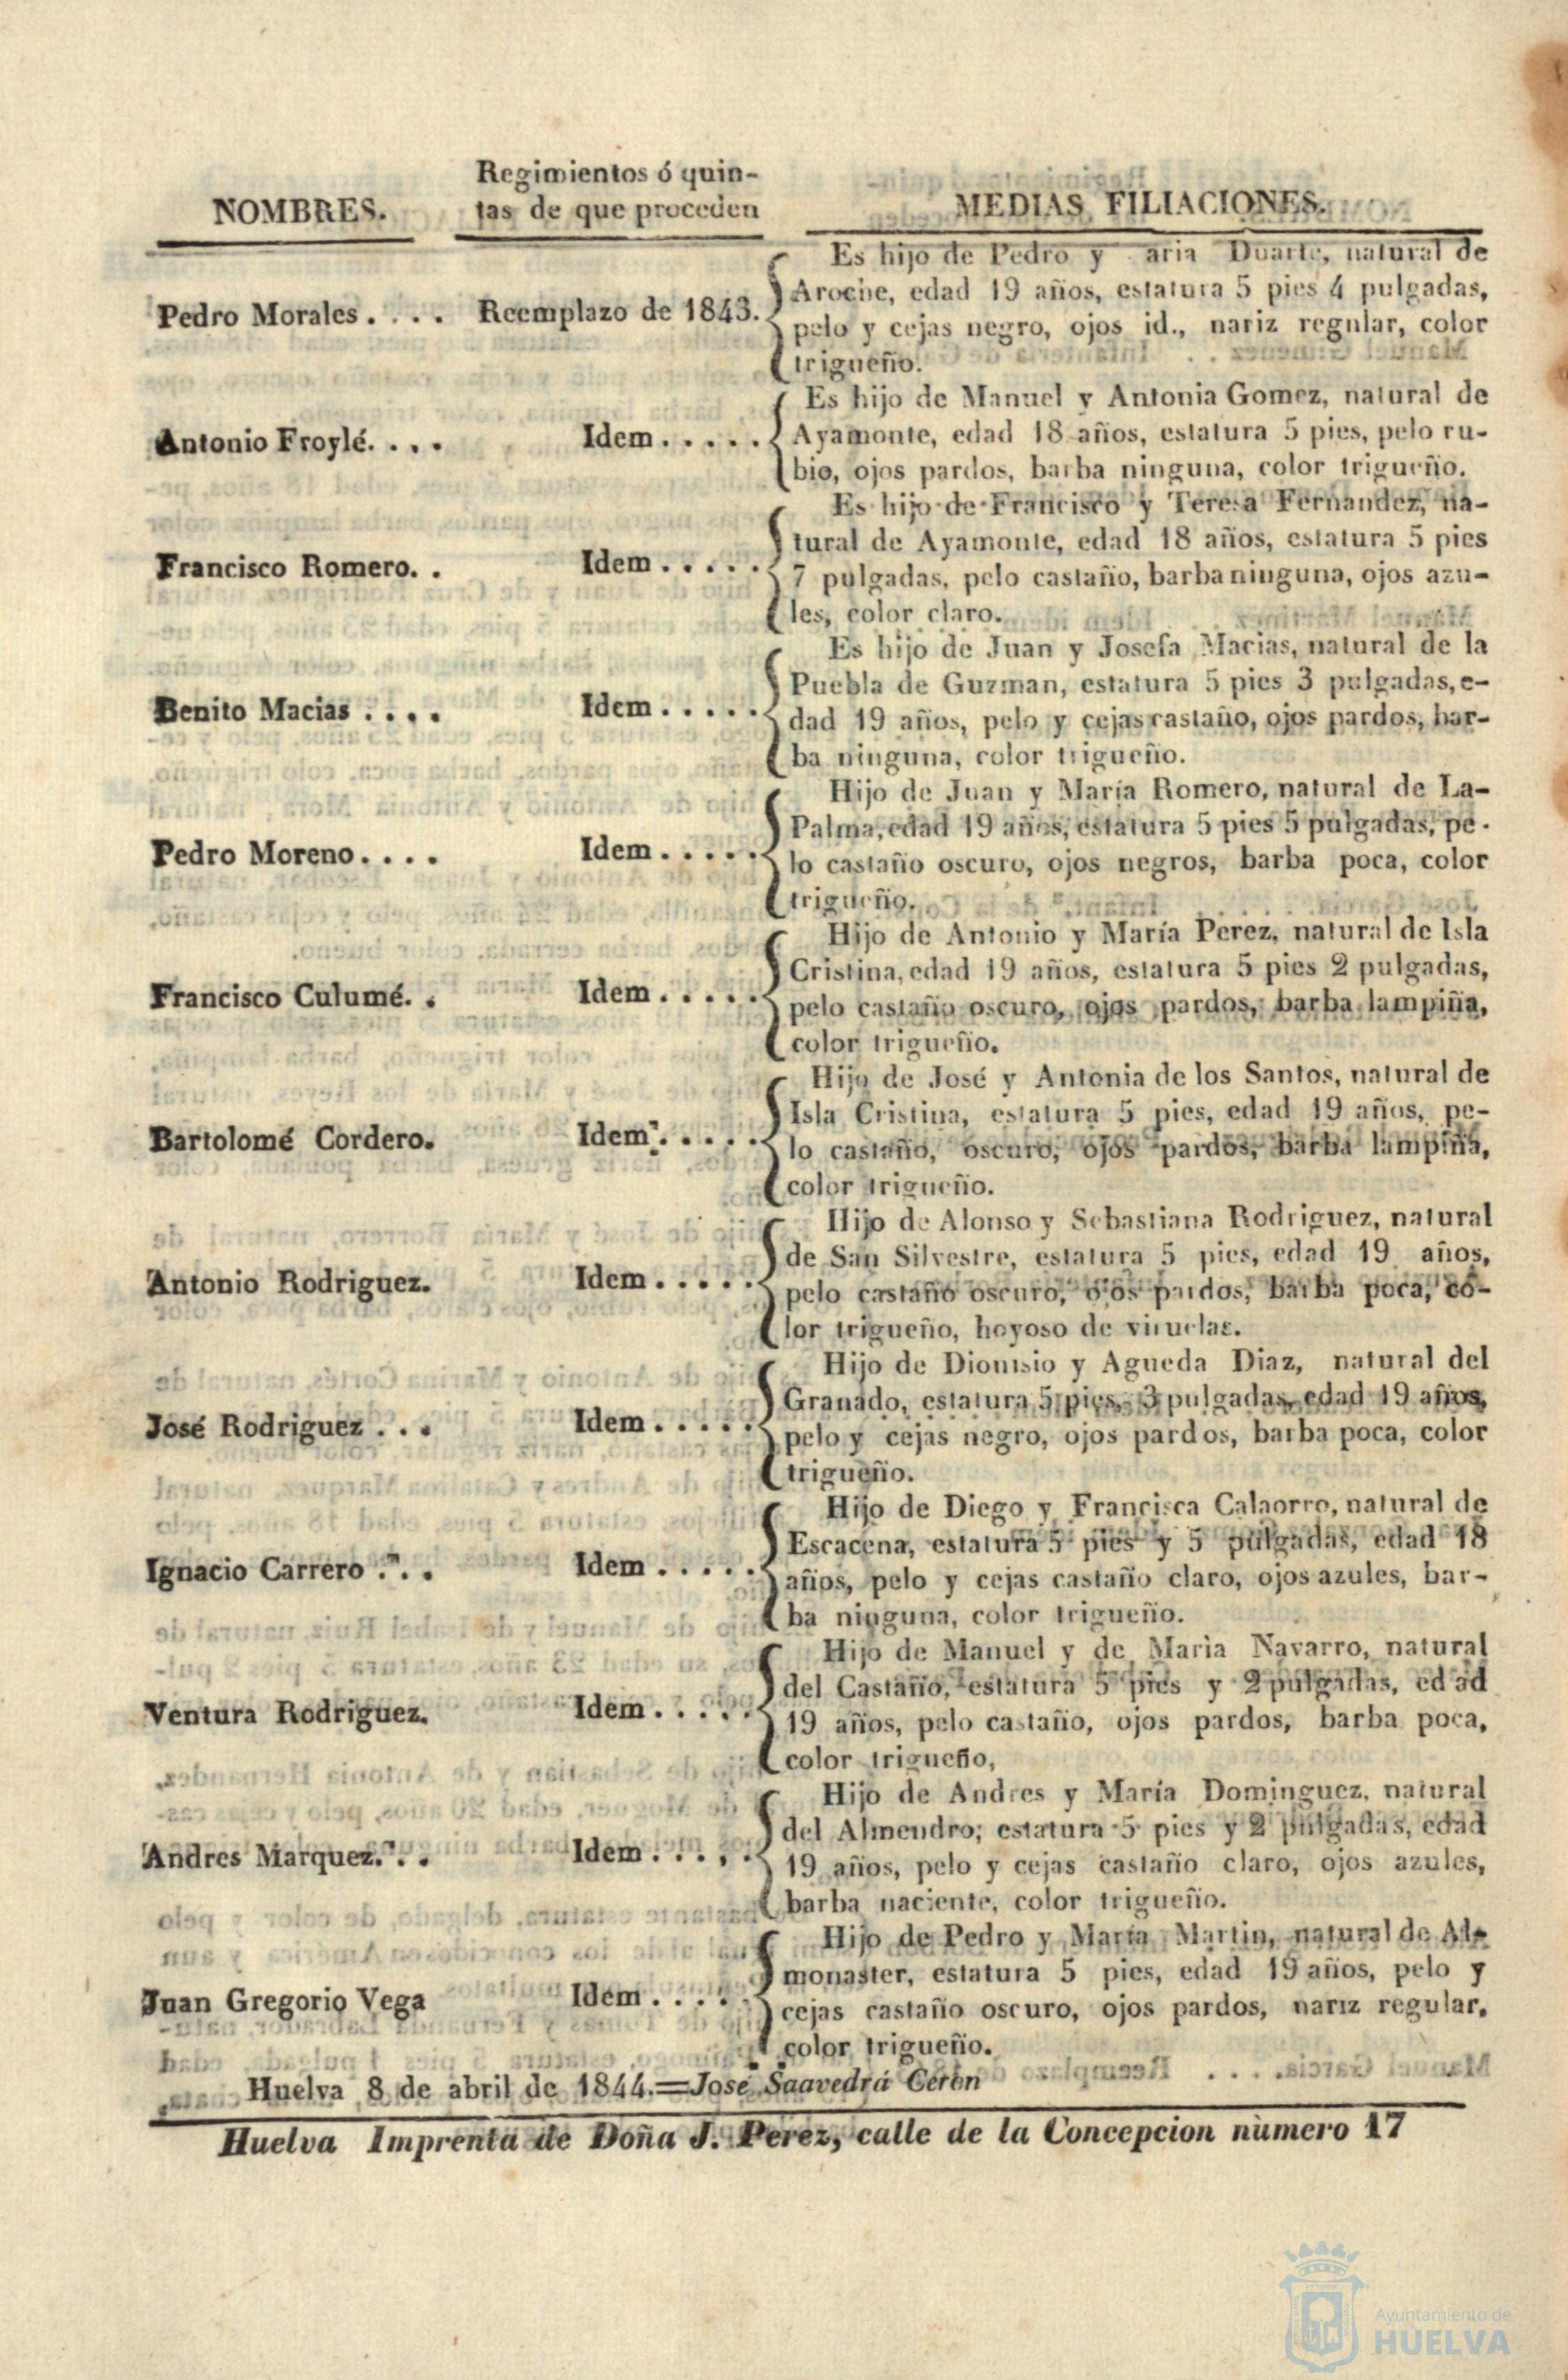 NOMBRES.
Regimientos ó quin-
tas de que proceden
MEDIAS FILIACIONES.
Pedro Morales . . . .
Reemplazo de 1843.
Es hijo de Pedro y aria Duarte, natural de
Aroche, edad 19 años, estatura 5 pies 4 pulgadas,
pelo y cejas negro, ojos id., nariz regular, color
trigueño.
Antonio Froylé. . . .
Idem . . . . .
Es hijo de Manuel y Antonia Gomez, natural de
Ayamonte, edad 18 años, estatura 5 pies, pelo ru-
bio, ojos pardos, barba ninguna, color trigueño.
Francisco Romero. .
Idem . . . . .
Es hijo de Francisco y Teresa Fernandez, na-
tural de Ayamonte, edad 18 años, estatura 5 pies
7 pulgadas, pelo castaño, barba ninguna, ojos azu-
les, color claro.
Benito Macias . . . .
Idem . . . . .
Es hijo de Juan y Josefa Macias, natural de la
Puebla de Guzman, estatura 5 pies 3 pulgadas, e-
dad 19 años, pelo y cejas castaño, ojos pardos, bar-
ba ninguna, color trigueño.
Pedro Moreno . . . .
Idem . . . . .
Hijo de Juan y María Romero, natural de La-
Palma, edad 19 años, estatura 5 pies 5 pulgadas, pe-
lo castaño oscuro, ojos negros, barba poca, color
trigueño.
Francisco Culumé. .
Idem . . . . .
Hijo de Antonio y María Perez, natural de Isla
Cristina, edad 19 años, estatura 5 pies 2 pulgadas,
pelo castaño oscuro, ojos pardos, barba lampiña,
color trigueño.
Bartolomé Cordero.
Idem . . . . .
Hijo de José y Antonia de los Santos, natural de
Isla Cristina, estatura 5 pies, edad 19 años, pe-
lo castaño, oscuro, ojos pardos, barba lampiña,
color trigueño.
Antonio Rodriguez.
Idem . . . . .
Hijo de Alonso y Sebastiana Rodriguez, natural
de San Silvestre, estatura 5 pies, edad 19 años,
pelo castaño oscuro, ojos pardos, barba poca, co-
lor trigueño, hoyoso de viruelas.
José Rodriguez . . .
Idem . . . . .
Hijo de Dionisio y Agueda Diaz, natural del
Granado, estatura 5 pies, 3 pulgadas, edad 19 años,
pelo y cejas negro, ojos pardos, barba poca, color
trigueño.
Ignacio Carrero . . .
Idem . . . . .
Hijo de Diego y Francisca Calaorro, natural de
Escacena, estatura 5 pies y 5 pulgadas, edad 18
años, pelo y cejas castaño claro, ojos azules, bar-
ba ninguna, color trigueño.
Ventura Rodriguez.
Idem . . . . .
Hijo de Manuel y de Maria Navarro, natural
del Castaño, estatura 5 pies y 2 pulgadas, edad
19 años, pelo castaño, ojos pardos, barba poca,
color trigueño,
Andres Marquez. . .
Idem . . . . .
Hijo de Andres y María Dominguez, natural
del Almendro; estatura 5 pies y 2 pulgadas, edad
19 años, pelo y cejas castaño claro, ojos azules,
barba naciente, color trigueño.
Juan Gregorio Vega
Idem . . . . .
Hijo de Pedro y María Martin, natural de Al-
monaster, estatura 5 pies, edad 19 años, pelo y
cejas castaño oscuro, ojos pardos, nariz regular,
color trigueño.
Huelva 8 de abril de 1844.=José Saavedra Cerón
Huelva Imprenta de Doña J. Perez, calle de la Concepcion número 17
Ayuntamiento de
HUELVA